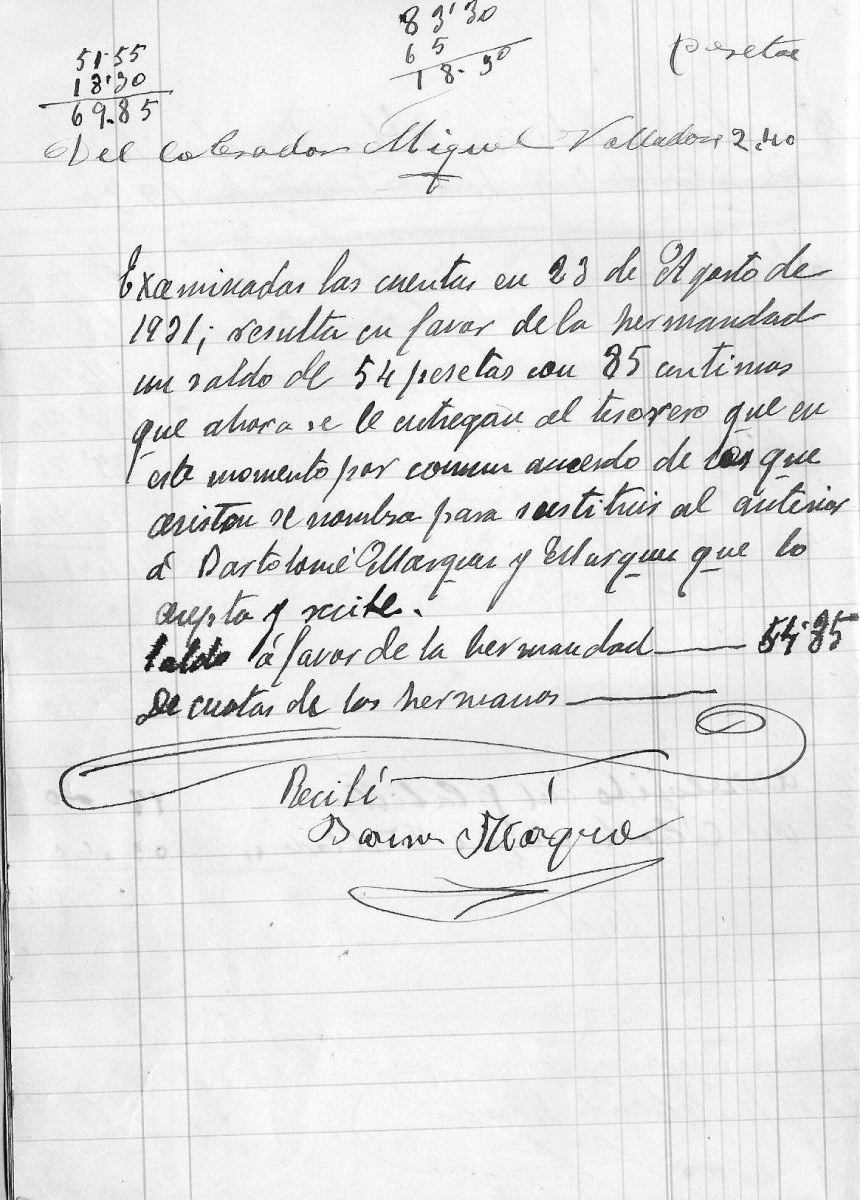 83'30
65
18.30
51.55
18'30
69.85
pesetas
Del cobrador Miguel Valladares 2.40
Examinadas las cuentas en 23 de Agosto de
1921; resulta en favor de la hermandad
un saldo de 54 pesetas con 85 centimos
que ahora se le entregan al tesorero que en
este momento por comun acuerdo de los que
asisten se nombra para sustituir al anterior
á Bartolomé Marquez y Marquez que lo
acepta y recibe.
Saldo á favor de la hermandad 54'85
De cuotas de los hermanos
Recibí
Márquez